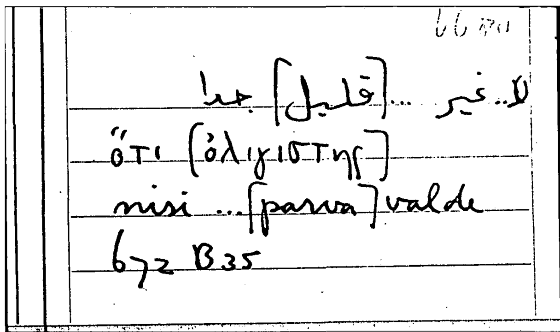 لا..غير ... [قليل] جدا
ὅτι [ὀλιγιστης]
nisi ... [parva] valde
672 B35